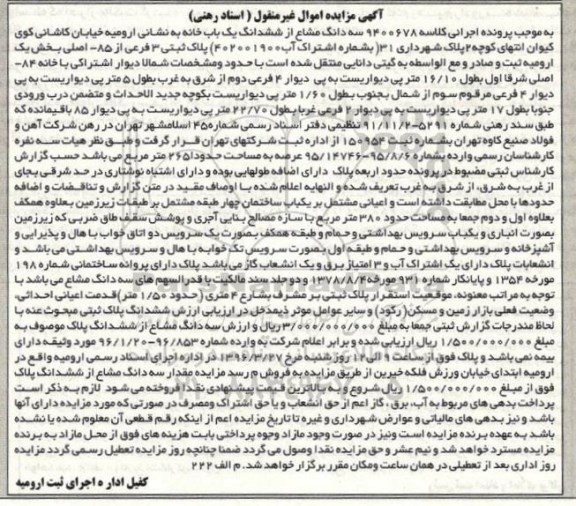 آگهی مزایده اموال غیرمنقول ( اسناد رهنی)
به موجب پرونده اجرائی کلاسه ۹۴۰۰۶۷۸ سه دانگ مشاع از ششدانگ یک باب خانه به نشانی ارومیه خیابان کاشانی کوی
کیوان انتهای کوچه ۲ پلاک شهرداری ۳۱ (بشماره اشتراک آب ۴۰۲۰۰۱۹۰۰) پلاک ثبتی ۳ فرعی از ۸۵- اصلی بخش یک
ارومیه ثبت و صادر و مع الواسطه به گیتی دانایی منتقل شده است با حدود ومشخصات شمالا دیوار اشتراکی با خانه ۸۴-
اصلی شرقا اول بطول ۱۶/۱۰ متر پی دیواریست به پی دیوار ۴ فرعی دوم از شرق به غرب بطول ۵ متر پی دیواریست به پی
دیوار ۴ فرعی مرقوم سوم از شمال بجنوب بطول ۱/۶۰ متر پی دیواریست بکوچه جدید الاحداث و متضمن درب ورودی
جنوبا بطول ۱۷ متر پی دیواریست به پی دیوار ۲ فرعی غربا بطول ۲۲/۷۰ متر پی دیواریست به پی دیوار ۸۵ باقیمانده که
طبق سند رهنی شماره ۵۲۹۱-۹۱/۱۱/۲ تنظیمی دفتر اسناد رسمی شماره ۴۵ اسلامشهر تهران در رهن شرکت آهن و
فولاد صنیع کاوه تهران بشماره ثبت ۱۵۰۹۵۴ از اداره ثبت شرکتهای تهران قرار گرفت و طبق نظر هیات سه نفره
کارشناسان رسمی وارده بشماره ۹۵/۸/۶-۹۵/۱۴۷۴۶ عرصه به مساحت حدودا ۲۶۵ متر مربع می باشد حسب گزارش
کارشناس ثبتی مضبوط در پرونده حدود اربعه پلاک دارای اضافه طولهایی بوده و دارای اشتباه نوشتاری در حد شرقی بجای
از غرب به شرق، از شرق به غرب تعریف شده و النهایه اعلام شده با اوصاف مقید در متن گزارش و تناقضات و اضافه
حدودها با محل مطابقت داشته است و اعیانی مشتمل بر یکباب ساختمان چهار طبقه مشتمل بر طبقات زیرزمین بعلاوه همکف
بعلاوه اول و دوم جمعا به مساحت حدود ۳۸۰ متر مربع با سازه مصالح بنایی آجری و پوشش سقف طاق ضربی که زیرزمین
بصورت انباری و یکباب سرویس بهداشتی و حمام و طبقه همکف بصورت یک سرویس دو اتاق خواب با هال و پذیرایی و
آشپزخانه و سرویس بهداشتی و حمام و طبقه اول بصورت سرویس تک خوابه با هال و سرویس بهداشتی می باشد و
انشعابات پلاک دارای یک اشتراک آب و ۳ امتیاز برق و یک انشعاب گاز می باشد پلاک دارای پروانه ساختمانی شماره ۱۹۸
مورخه ۱۳۵۴ و پایانکار شماره ۹۳۱ مورخه ۱۳۷۸/۸/۴ و دو جلد سند مالکیت با قدرالسهم های سه دانگ مشاع می باشد با
توجه به مراتب معنونه، موقعیت استقرار پلاک ثبتی بر مشرف بشارع ۴ متری (حدود ۱/۵۰ متر) قدمت اعیانی احداثی،
وضعیت فعلی بازار زمین و مسکن (رکود) و سایر عوامل موثر ذیمدخل در ارزیابی ارزش ششدانگ پلاک ثبتی مبحوث عنه با
لحاظ مندرجات گزارش ثبتی جمعا به مبلغ ۳/۰۰۰/۰۰۰/۰۰۰ ریال و ارزش سه دانگ مشاع از ششدانگ پلاک موصوف به
مبلغ ۱/۵۰۰/۰۰۰/۰۰۰ ریال ارزیابی شده و برابر اعلام شرکت به وارده شماره ۹۶/۸۵۳-۹۶/۱/۲۰ مورد وثیقه دارای
بیمه نمی باشد و پلاک فوق از ساعت ۹ الی ۱۲ روز شنبه مرخ ۱۳۹۶/۳/۲۷ در اداره اجرای اسناد رسمی ارومیه واقع در
ارومیه ابتدای خیابان ورزش فلکه خیرین از طریق مزایده به فروش م رسد مزایده مقدار سه دانگ مشاع از ششدانگ پلاک
فوق از مبلغ ۱/۵۰۰/۰۰۰/۰۰۰ ریال شروع و به بالاترین قیمت پیشنهادی نقدا فروخته می شود لازم به ذکر است
پرداخت بدهی های مربوط به آب، برق، گاز اعم از حق انشعاب و یا حق اشتراک ومصرف در صورتی که مورد مزایده دارای آنها
باشد و نیز بدهی های مالیاتی و عوارض شهرداری و غیره تا تاریخ مزایده اعم از اینکه رقم قطعی آن معلوم شده یا نشده
باشد به عهده برنده مزایده است ونیز در صورت وجود مازاد وجوه پرداختی بابت هزینه های فوق از محل مازاد به برنده
مزایده مسترد خواهد شد و نیم عشر و حق مزایده نقدا وصول می گردد ضمنا چنانچه روز مزایده تعطیل رسمی گردد مزایده
روز اداری بعد از تعطیلی در همان ساعت ومکان مقرر برگزار خواهد شد. م الف ۲۲۲
کفیل اداره اجرای ثبت ارومیه